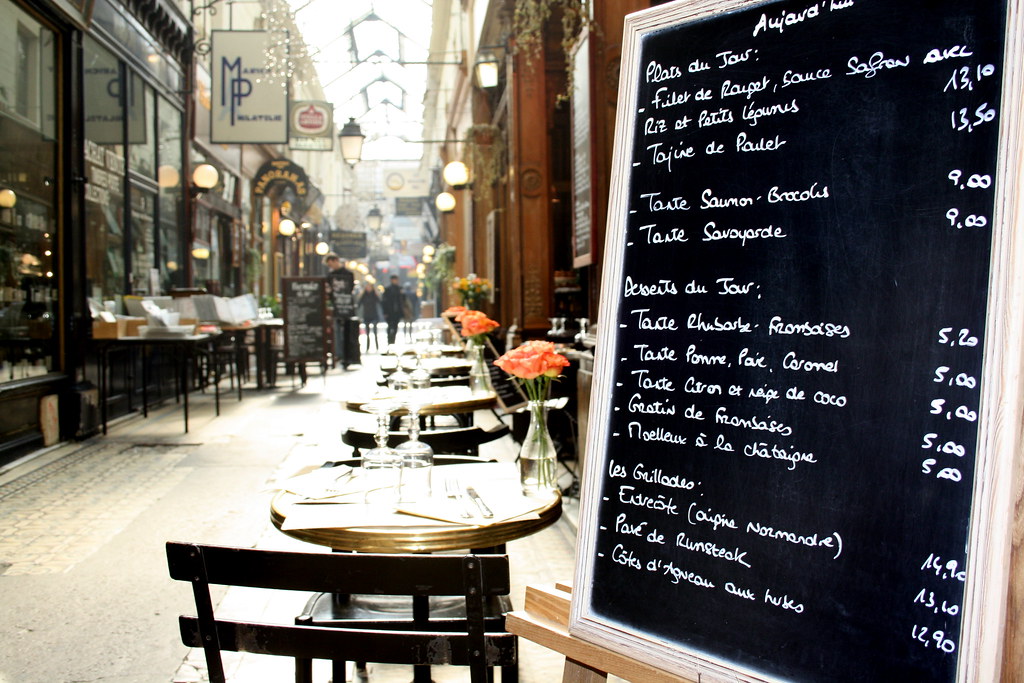 Aujourd'hui
Plats du Jour:
- Filet de Rouget, sauce Safran avec
Riz et Petits légumes 13,10
- Tajine de Poulet 13,50
- Tarte Saumon - Brocolis 9,00
- Tarte Savoyarde 9,00
Desserts du Jour:
- Tarte Rhubarbe - Framboises 5,20
- Tarte Pomme, Poire, Caramel 5,00
- Tarte Citron et neige de coco 5,00
- Gratin de Framboises 5,00
- Moelleux à la châtaigne 5,00
Les Grillades:
- Entrecôte (origine Normandie) 14,90
- Pavé de Rumsteak 13,10
- Côtes d'Agneau aux herbes 12,90
MP
PHILATELIE
PANORAMAS